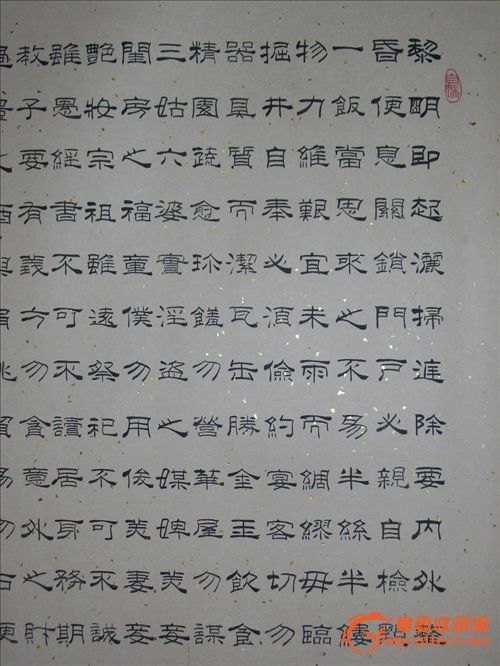 黎明即起灑掃庭除要內外整
昏便息關鎖門戶必親自檢點
一飯當思來之不易半絲半縷
物力維艱宜未雨而綢繆毋臨
掘井自奉必須儉約宴客切勿
器具質而潔瓦缶勝金玉飲食
精園蔬愈珍饈勿營華屋勿謀
三姑六婆實淫盜之媒婢美妾
閨房之福童僕勿用俊美妻妾
艷妝宗祖雖遠祭祀不可不誠
雖愚經書不可不讀居身務期
教子要有義方勿貪意外之財
過量之酒與肩挑貿易勿占便